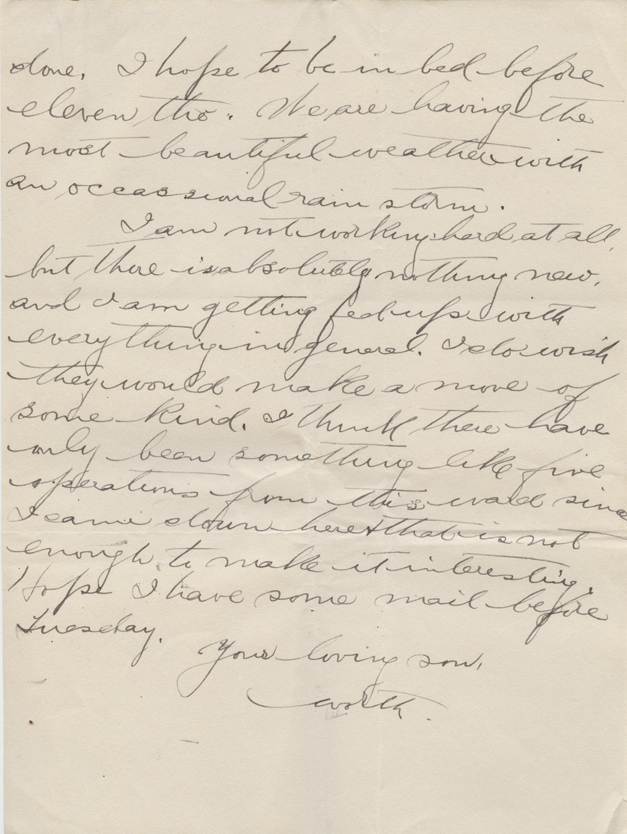 done. I hope to be in bed before
eleven tho. We are having the
most beautiful weather with
an occassional rain storm.
I am not working hard at all,
but there is absolutely nothing new,
and I am getting fed up with
everything in general. I do wish
they would make a move of
some kind. I think there have
only been something like five
operations from this ward since
I came down here & that is not
enough to make it interesting.
Hope I have some mail before
Tuesday.
Your loving son,
Worth.